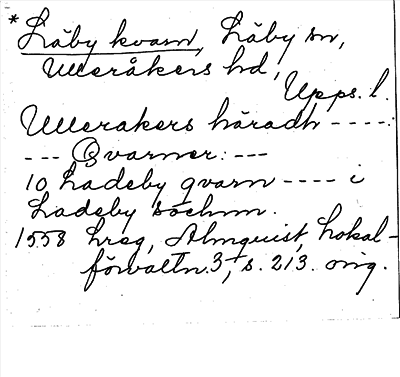 * Läby kvarn, Läby sn,
Ulleråkers hd,
Upps. l.
Ullerakers häradh ----:
--- Qvarner: ---
10 Ladeby qvarn ---- i
Ladeby sochnn.
1558 hreg, Almquist, Lokal-
förvaltn. 3, s. 213. orig.